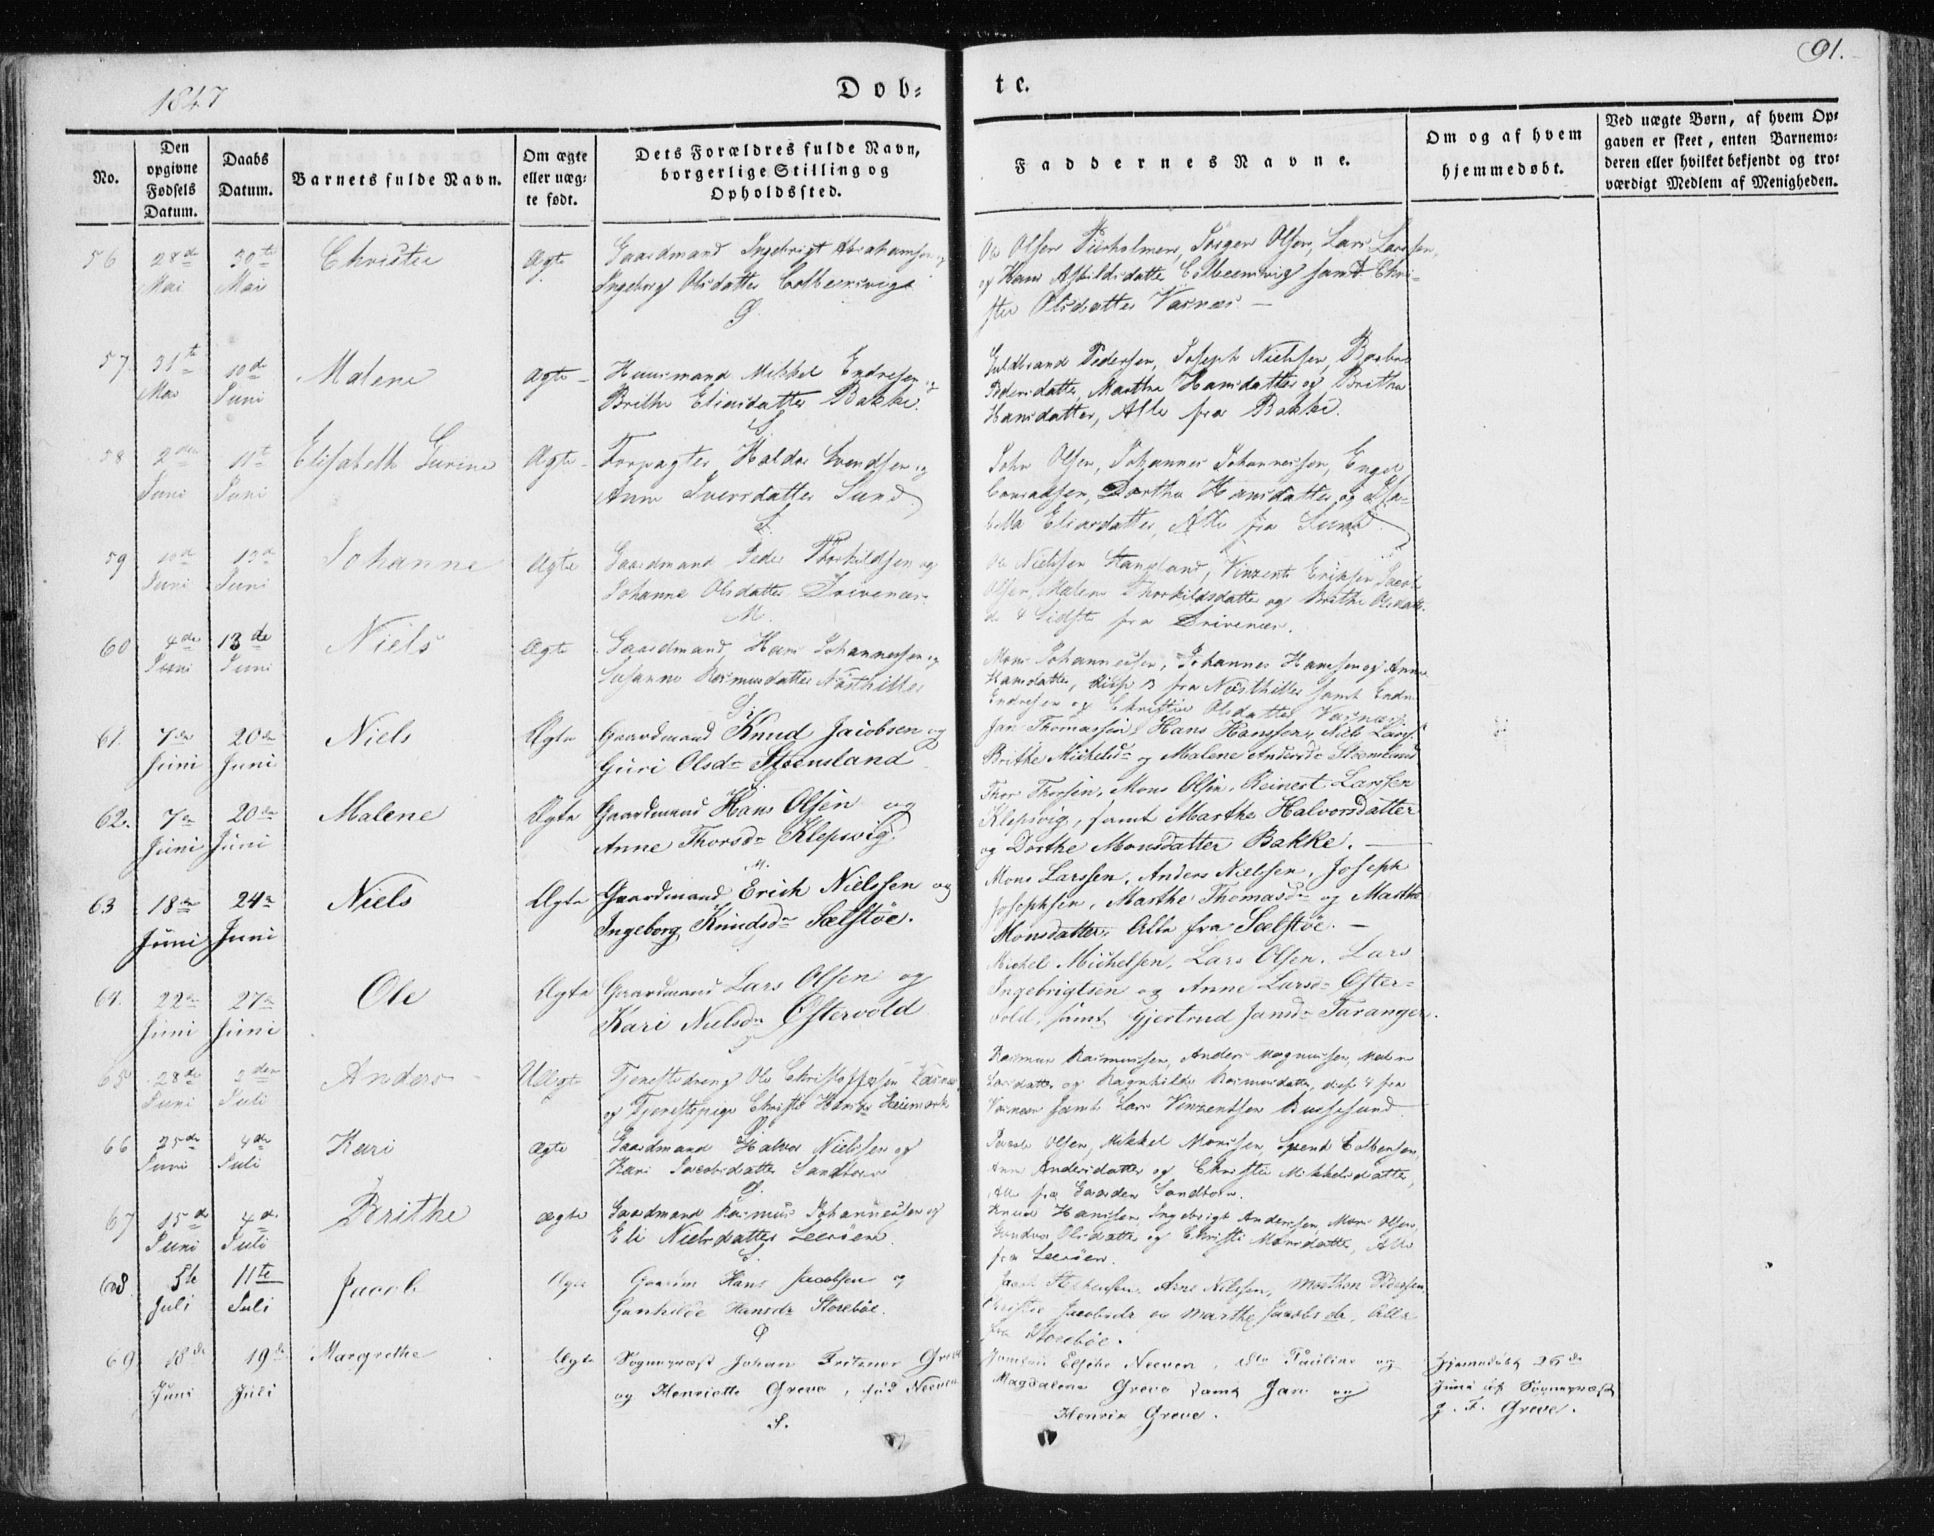 1847
Dob=
te.
91.
No.
Den
opgivne
Fødsels
Datum.
Daabs
Datum.
Barnets fulde Navn.
Om ægte
eller uæg=
te født.
Dets Forældres fulde Navn,
borgerlige Stilling og
Opholdssted.
Faddernes Navne.
Om og af hvem
hjemmedøbt.
Ved uægte Børn, af hvem Op=
gaven er skeet, enten Barnemo=
deren eller hvilket bekjendt og tro=
værdigt Medlem af Menigheden.
56 28de 30te Christie Ægte Gaardmand Ingebrigt Abrahamsen og
Mai Mai Ingeborg Olsdatter
Ole Olsen Jørgen Olsen, Lars Larssen,
og samt Chri-
stie Olsdatter Vaernes. —
57 31te 10de Malene Ægte Huusmand Mikkel Endresen og
Mai Juni Brithe Eliasdatter Bakke.
Guldbrand Pedersen, Joseph Nielsen, Barbra
Pedersdatter, Marthe Hansdatter og Brithe
Hansdatter, Alle fra Bakke.
58 2den 11te Elisabeth Gurine Ægte Forpagter Haldor Svendsen og
Juni Juni Anne Iversdatter Sund
John Olsen, Johannes Johannessen, Engel
Conradsen, Dorthe Hansdatter og Isa-
bella Eliasdatter, Alle fra Sund.
59 10de 13de Johanne Ægte Gaardmand Peder Thorkildsen og
Juni Juni Johanne Olsdatter Drivenæs
Ole Nielsen Haugland, Vinzents Eriksen, Jacob
Olsen, Malene Thorkildsdatter og Brithe Olsdatter
de 4 sidste fra Drivenæs.
60 4de 13de Niels Ægte Gaardmand Hans Johannessen og
Juni Juni Susanne Rasmusdatter Nøsthiller
Mons Johannessen, Johannes Hanssen og Anne
Hansdatter, disse 3 fra Nøsthiller samt Endre
Endresen og Christie Olsdatter Vaernes.
61. 7de 20de Niels Ægte Gaardmand Knud Jacobsen og
Juni Juni Guri Olsdr Steensland
Jan Thomassen, Hans Hanssen, Niels Larss.
Brithe Michelsdr og Malene Andersdr Steensland
62. 7de 20de Malene Ægte Gaardmand Hans Olsen og
Juni Juni Anne Thorsdr Klepsvig
Thor Thorsen, Mons Olsen, Reinert Larssen
Klepsvig, samt Marthe Halvorsdatter
og Dorthe Monsdatter Bakke. —
63 18de 24de Niels Ægte Gaardmand Erich Nielssen og
Juni Juni Ingeborg Knudsdr Sælstøe.
Mons Larssen, Anders Nielssen, Joseph
Josephsen, Marthe Thomasdr og Marthe
Monsdatter, Alle fra Sælstøe. —
64. 22de 27de Ole Ægte Gaardmand Lars Olsen og
Juni Juni Kari Nielsdr Østervold
Michel Michelsen, Lars Olsen, Lars
Ingebrigtsen og Anne Larsdr Øster=
vold, samt Gjertrud Jansdr Taranger.
65 28de 2den Anders Uægte Tjenestedreng Ole Christophersen
Juni Juli og Tjenestepige Christie Hansdr
Rasmus Rasmussen, Anders Magnussen, Malene
Larsdatter og Ragnhilde Rasmusdatter, disse 4 fra
samt Lars Vinzentsen Bussesund.
66 25de 4de Kari Ægte Gaardmand Halvor Nielssen og
Juni Juli Kari Jacobsdatter Sandtorv
Jacob Olsen, Mikkel Monsen, Svend
Anne Andersdatter og Christie Mikkelsdatter,
Alle fra Gaarden Sandtorv.
67 15de 4de Brithe Ægte Gaardmand Rasmus Johannessen og
Juni Juli Eli Nielsdatter Leerøen.
Knud Hanssen, Ingebrigt Anderssen, Mons Olsen,
Gundvor Olsdatter og Christie Monsdatter, Alle
fra Leerøen.
68. 5te 11te Jacob Ægte Gaardm Hans Jacobsen og
Juli Juli Gunhilde Hansdr Storebøe.
Arne Nilssen, Morthen Pederssen
Christie Jacobsdr og Marthe Jacobsdr, Alle
fra Storebøe.
69 18de 19de Margrethe Ægte Sognepræst Johan Fritzner Greve
Juni Juli og Henriette Greve, fød Neeven
S.
Jomfru Elsebe Neeven, Pauline og
Magdalene Greve samt Jan og
Henrik Greve.
Hjemmedøbt 26de
Juni af Sognepræst
J. F. Greve.